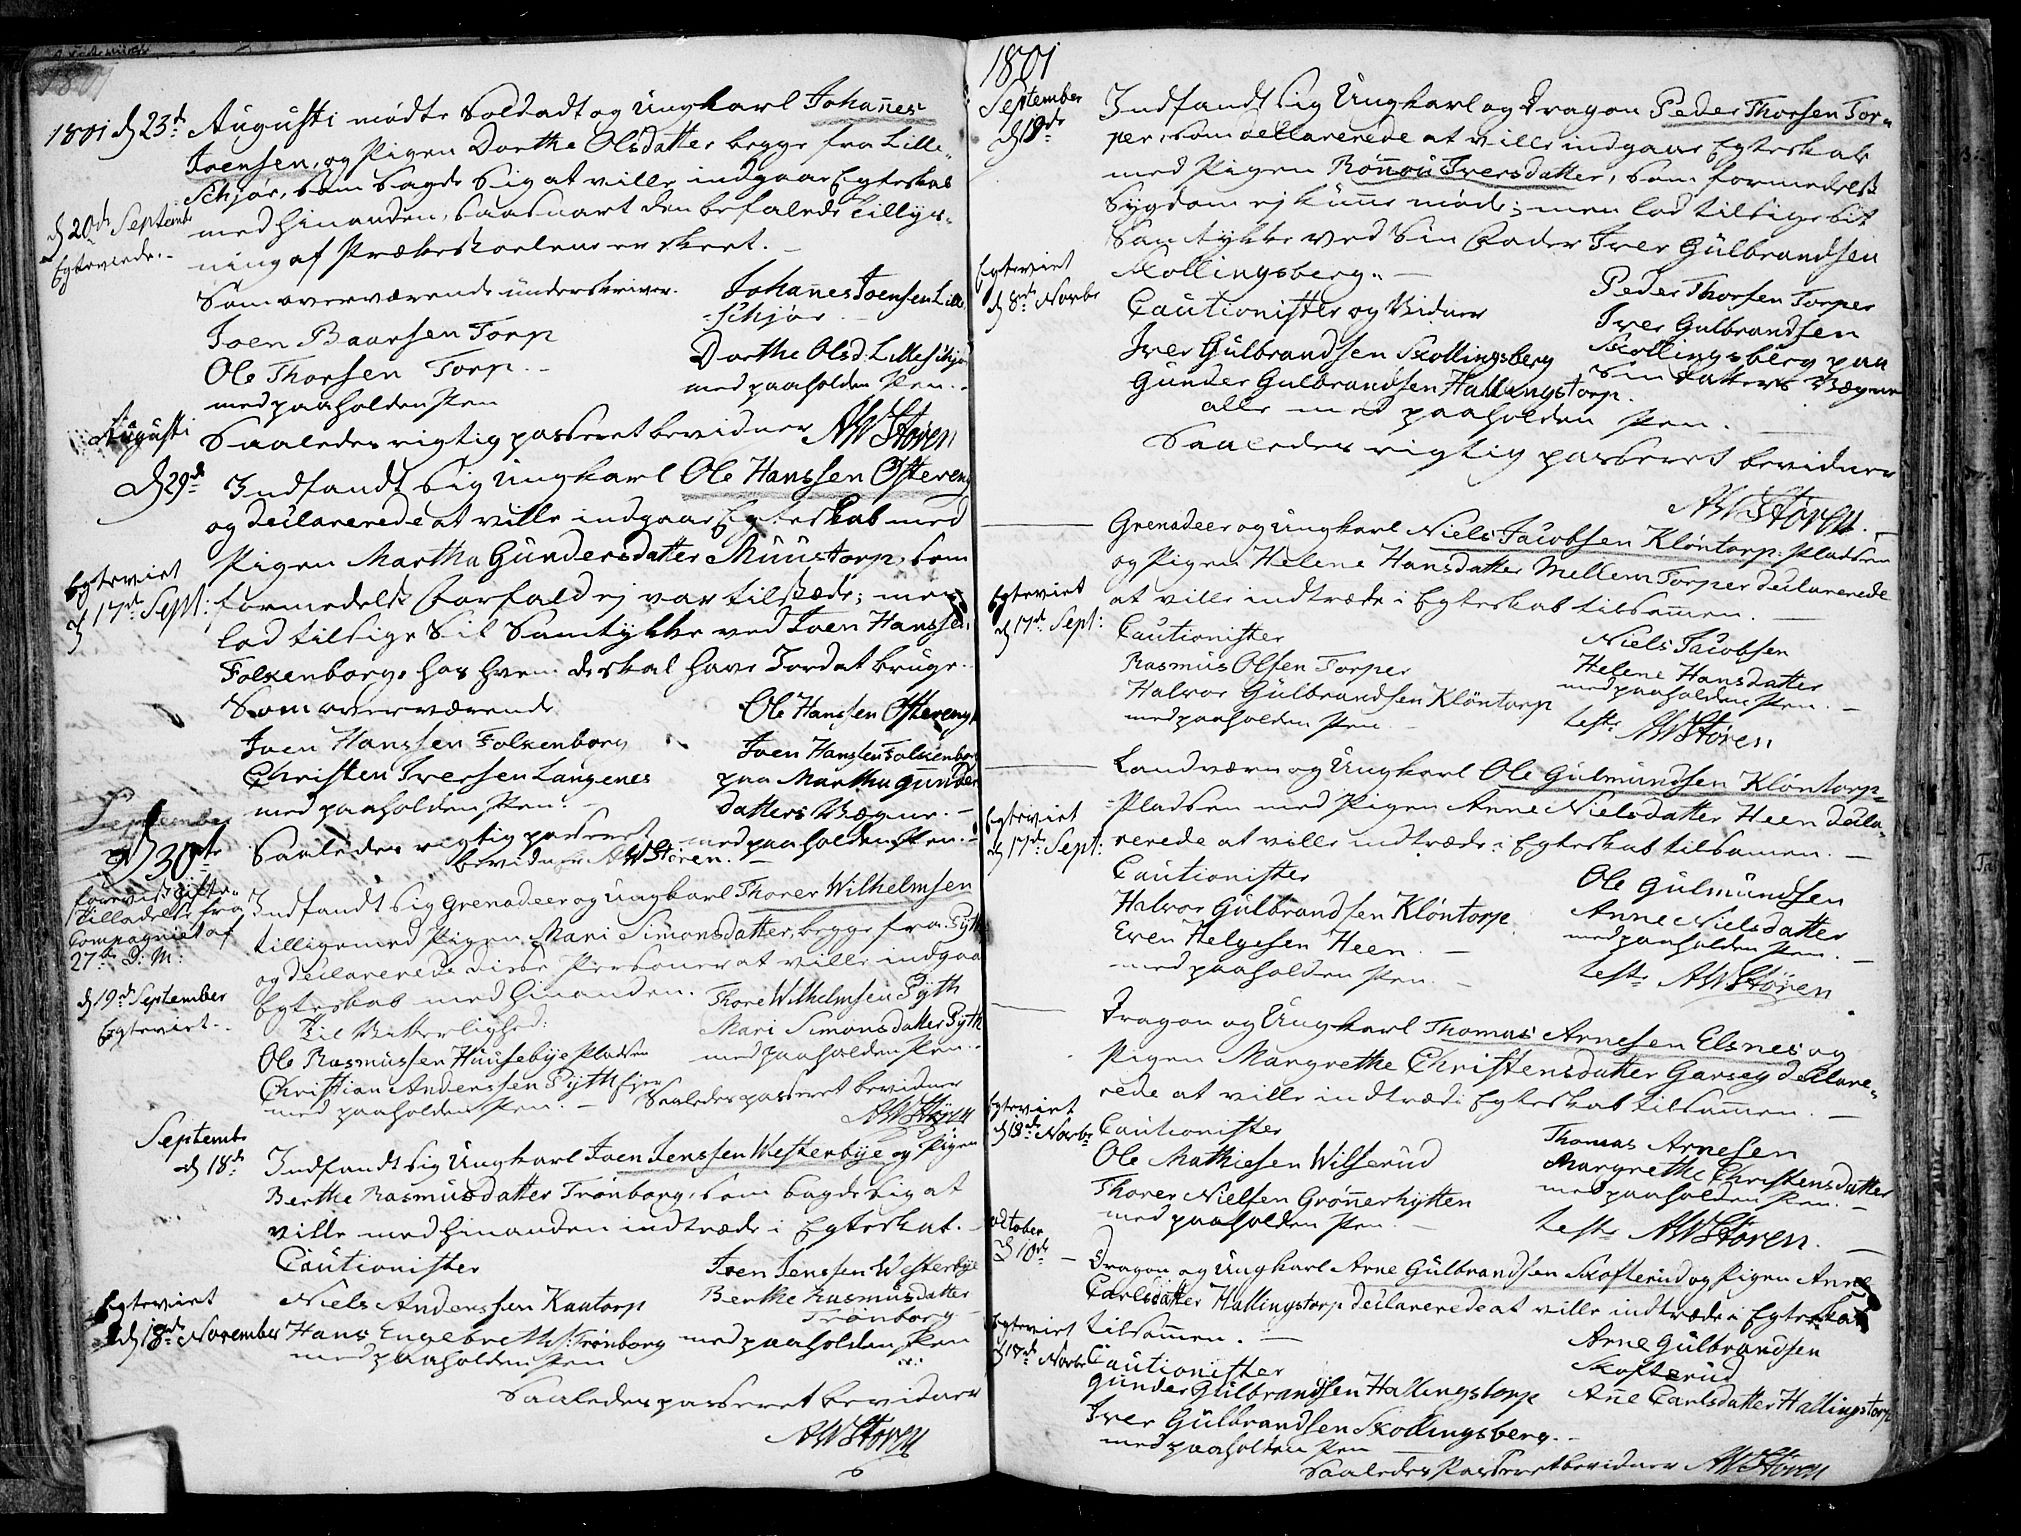 1801
1801 d 23de Augusti mødte Soldadt og Ungkarl Johañes
Joensen, og Pigen Dorthe Olsdatter begge fra Lille-
Schjør, som sagde sig at ville indgaae Egteskab
med hinanden, saasnart den befalede Tillys-
ning af Prækestoelene er skeet. -
d 20de Septembr
Egteviede. -
Som overværende underskriver.
Joen Baarsen Torp
Ole Thorsen Torp. -
med paaholden Pen
Johañes Joensen Lille
schjør
Dorthe Olsd: Lilleschjør
med paaholden Pen. -
Saaledes rigtig passeret bevidner AWStøren
Augusti
d 29de Indfandt sig Ungkarl Ole Hanssen Østereng
og declarerede at ville indgaae Egteskab med
Pigen Martha Gundersdatter Muustorp, som
formedelst Forfald ej var tilstæde; men
lod tilsige sit Samtykke ved Joen Hanssen
Folkenborg, hos hvem de skal have Jord at bruge.
Egteviet
d 17de Sept:
Som overværende
Joen Hanssen Folkenborg
Christen Iversen Langenes
med paaholden Pen. -
Ole Hanssen Østereng
Joen Hanssen Folkenborg
paa Martha Gunders
datters Vegne. -
med paaholden Pen. -
Saaledes rigtig passeret
bevidner AWStøren. -
September
d 30te
forevist Gifte-
Tilladelse fra
Compagniet af
27de D: M:
Indfandt sig Grenadeer og Ungkarl Thorer Wilhelmsen
tilligemed Pigen Mari Simonsdatter, begge fra Pyth
og declarerede disse Personer at ville indgaa
Egteskab med hinanden.
d 19de September
Egteviet. -
Til Vitterlighed:
Ole Rasmussen Huusebye Pladsen
Christian Anderssen Pyth Ejer
med paaholden Pen. -
Thore Wilhelmsen Pyth
Mari Simonsdatter Pyth
med paaholden Pen. -
Saaledes passeret bevidner
AWStøren
Septembr
d 18de Indfandt sig Ungkarl Joen Jenssen Westerbye og Pigen
Berthe Rasmusdatter Trønborg, som sagde sig at
ville med hinanden indtræde i Egteskab. -
Cautionister
Niels Anderssen Kaatorp
Hans Engebreths: Trønborg
med paaholden Pen
Joen Jenssen Westerbye
Berthe Rasmusdatter
Trønborg
med paaholden Pen
Egteviet
d 18de November
Saaledes passeret bevidner
AWStøren
1801
September
d 19de
Indfandt sig Ungkarl og Dragon Peder Thorsen Tor-
per, som declarerede at ville indgaae Egteskab
med Pigen Roñou Iversdatter, som formedelst
Sygdom ej kunne møde; men lod tilsige sit
Samtykke ved sin Fader Iver Gulbrandsen
Skollingsberg. -
Egteviet
d 8de Novbr
Cautionister og Vidner
Iver Gulbrandsen Skollingsberg
Gunder Gulbrandsen Hallingstorp.
alle med paaholden Pen. -
Peder Thorsen Torper
Iver Gulbrandsen
Skollingsberg paa
sin Datters Vegne
Saaledes rigtig passeret bevidner
AWStøren. -
Grenadeer og Ungkarl Niels Jacobsen Kløntorp: Pladsen
og Pigen Helene Hansdatter Mellem Torper declarerede
at ville indtræde i Egteskab tilsam̄en.
Egteviet
d 17de Sept:
Cautionister
Rasmus Olsen Torper
Halvor Gulbrandsen Kløntorp
med paaholden Pen
Niels Jacobsen
Helene Hansdatter
med paaholden Pen. -
test: AWStøren
Landværn og Ungkarl Ole Gulmundsen Kløntorp-
Pladsen med Pigen Anne Nielsdatter Heen decla-
rerede at ville indtræde i Egteskab tilsamen. -
Egteviet
d 17de Sept:
Cautionister
Halvor Gulbrandsen Kløntorp
Even Helgesen Heen. -
med paaholden Pen. -
Ole Gulmundsen
Anne Nielsdatter
med paaholden Pen. -
test: AWStøren
Dragon og Ungkarl Thomas Arnesen Elsnes og
Pigen Margrethe Christensdatter Garseg declare-
rede at ville indtræde i Egteskab tilsam̄en. -
Egteviet
d 18de Novbr
Cautionister
Ole Mathiesen Wilserud
Thorer Nielsen Grøñerhytten
med paaholden Pen. -
Thomas Arnesen
Margrethe Christensdatter
med paaholden Pen. -
test: AWStøren. -
october
d 10de - Dragon og Ungkarl Arne Gulbrandsen Skofterud og Pigen Anne
Carlsdatter Hallingstorp declarerede at ville indtræde i Egteskab
tilsam̄en. -
Egteviet
d 18de Novbr
Cautionister
Gunder Gulbrandsen Hallingstorp
Iver Gulbrandsen Skollingsberg. -
med paaholden Pen
Arne Gulbrandsen
Skofterud
Añe Carlsdatter Hallingstorp
Saaledes Passeret bevidner AWStøren